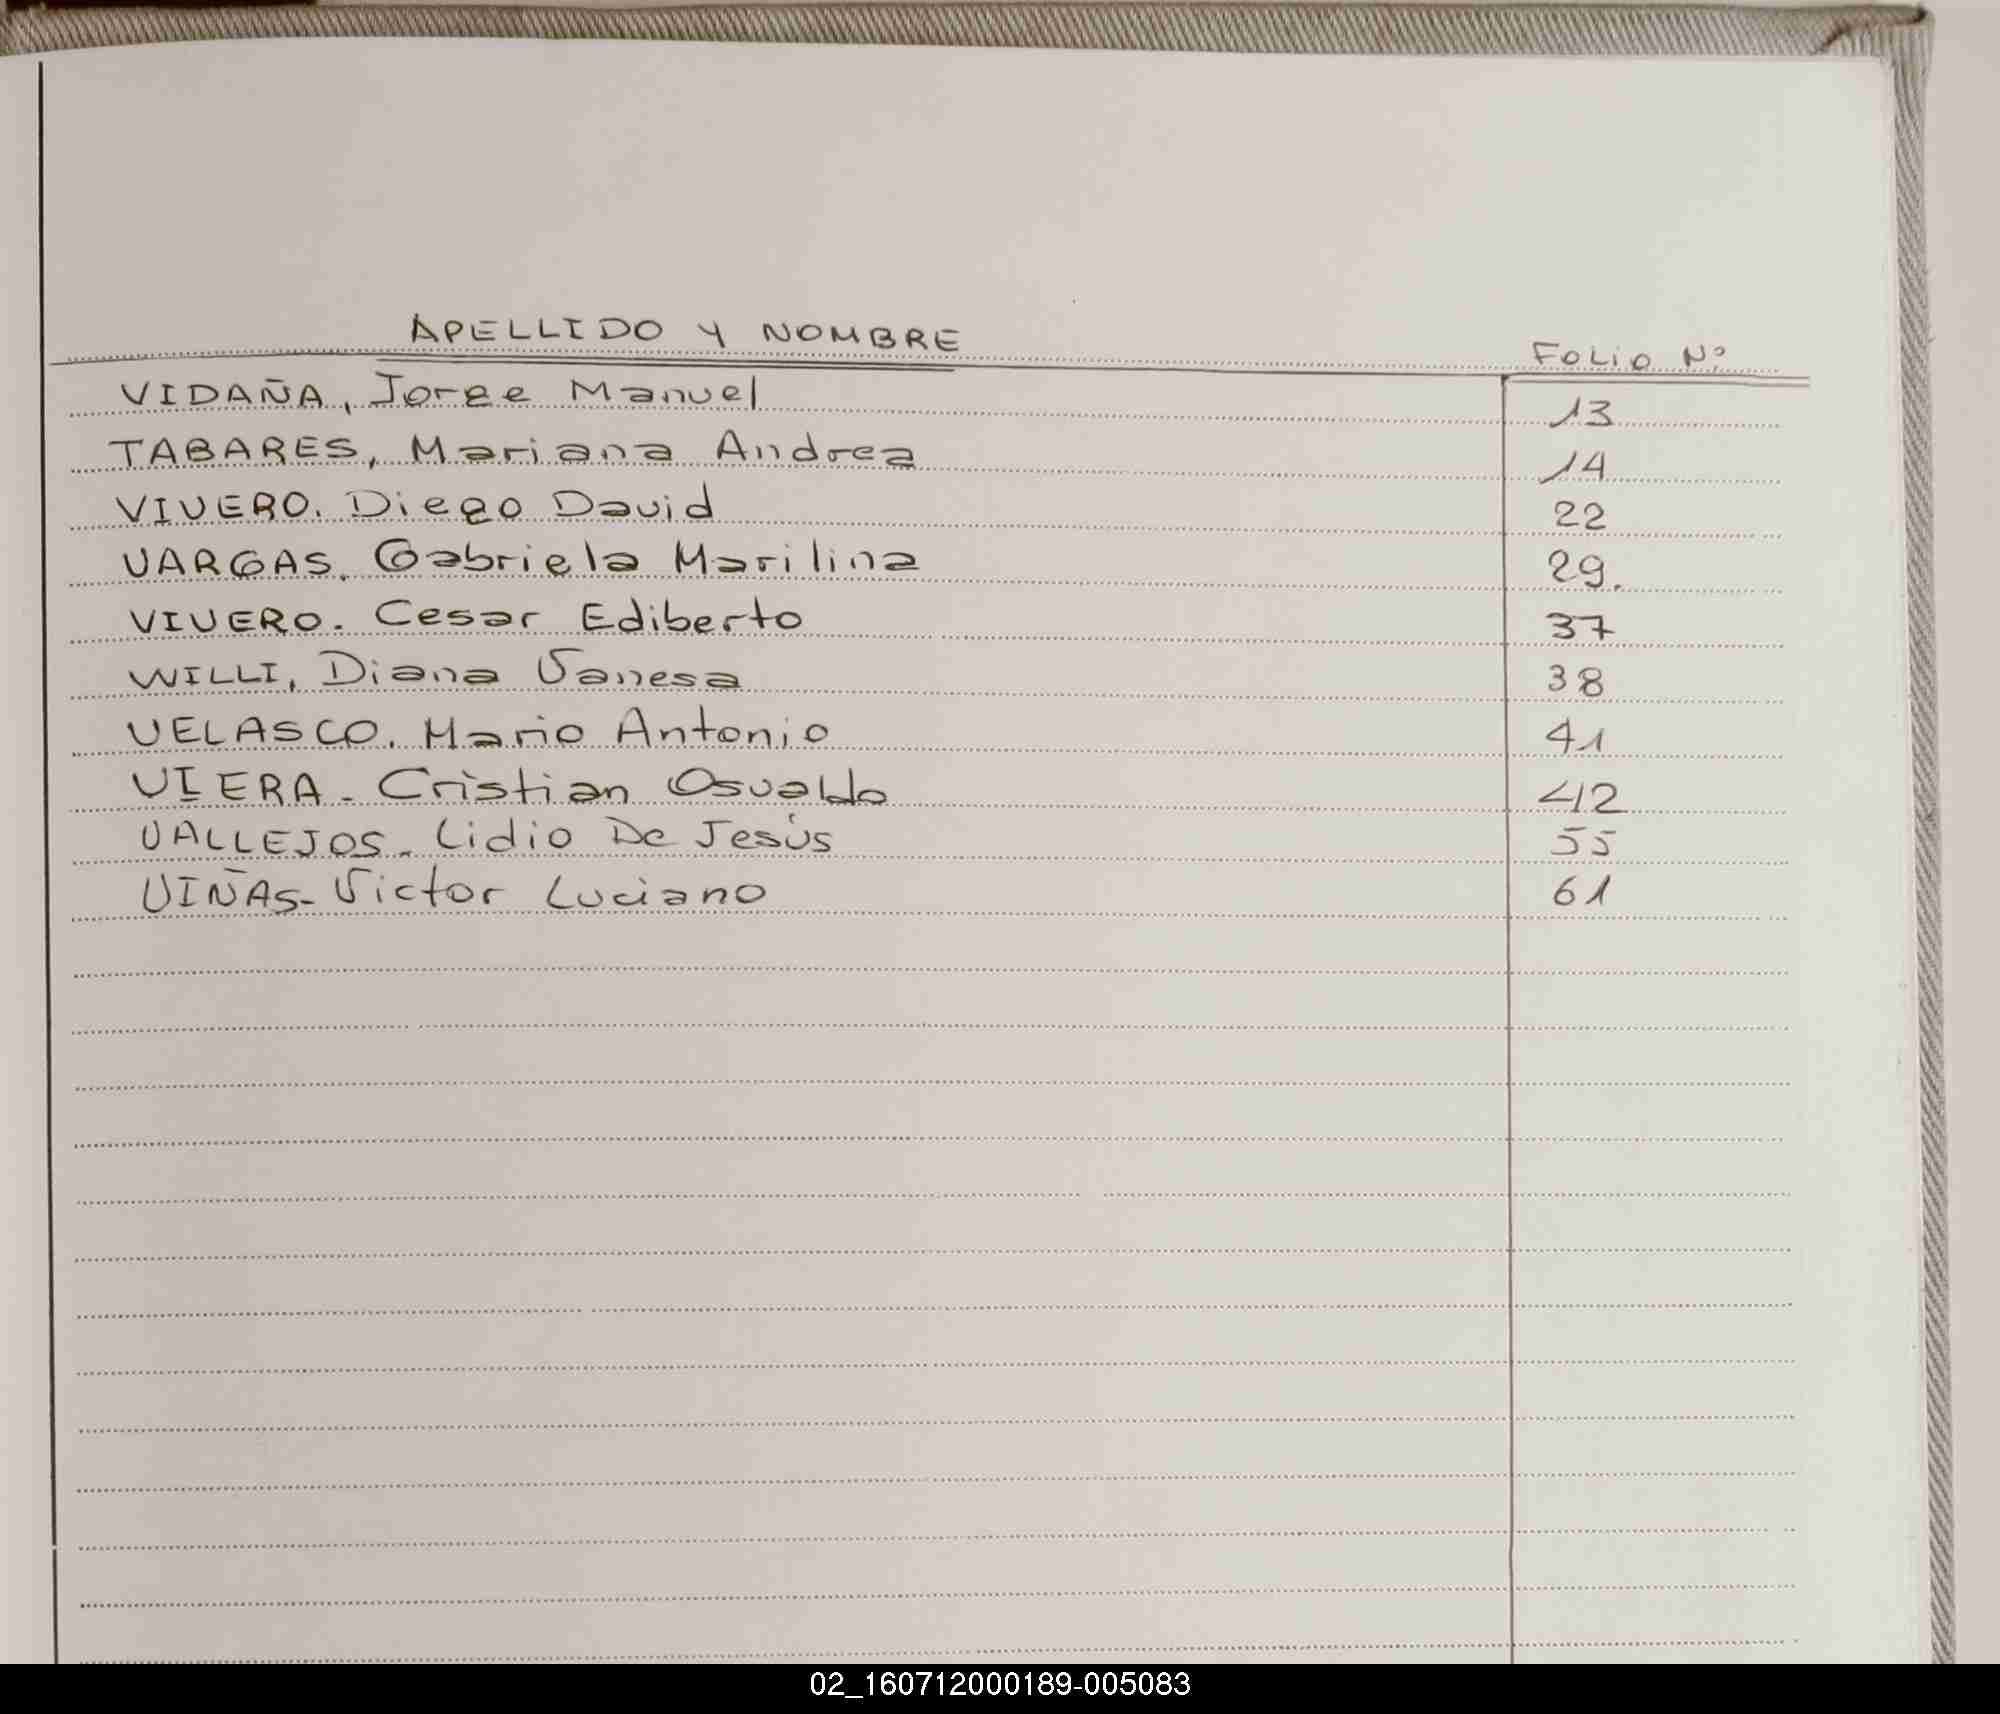 APELLIDO Y NOMBRE FOLIO Nº
VIDAÑA, Jorge Manuel 13
TABARES, Mariana Andrea 14
VIVERO. Diego David 22
VARGAS. Gabriela Marilina 29.
VIVERO. Cesar Ediberto 37
WILLI, Diana Vanesa 38
VELASCO. Mario Antonio 41
VIERA - Cristian Osvaldo 42
VALLEJOS - Lidio De Jesús 55
VIÑAS - Victor Luciano 61
02_160712000189-005083